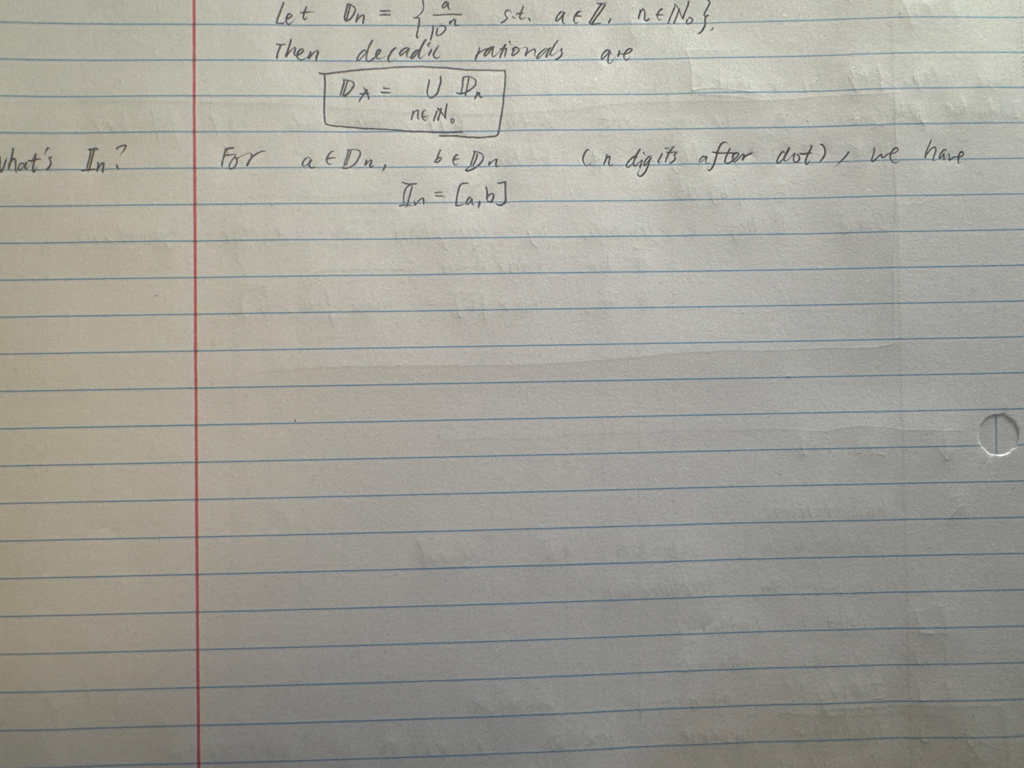 Let 𝔻n = { a/10^n s.t. a ∈ ℤ, n ∈ ℕ₀}.
Then decadic rationals are
𝔻_A = ∪ 𝔻n
n∈ℕ₀
what's 𝕀n? For a ∈ 𝔻n, b ∈ 𝔻n (n digits after dot), we have
𝕀n = [a,b]